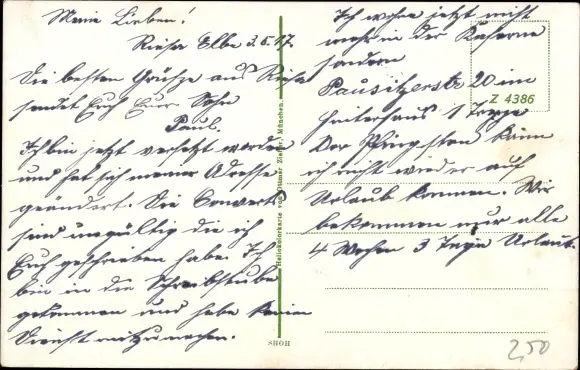 Meine Lieben!
Riesa Elbe 3.6.17.
Die besten Grüße aus Riesa
sendet Euch Euer Sohn
Paul.
Ich bin jetzt versetzt worden
und hat sich meine Adresse
geändert. Die Couverts
sind ungültig die ich
Euch geschrieben habe. Ich
bin in die Schreibstube
gekommen und habe keinen
Dienst mitzumachen.
Ich wohne jetzt nicht
mehr in der Kaserne
sondern
Pausitzerstr 20 im
Hinterhaus 1 Treppe
Vor Pfingsten kann
ich nicht wieder auf
Urlaub kommen. Wir
bekommen nur alle
4 Wochen 3 Tage Urlaub.
Z 4386
München.
HOHS
2,50